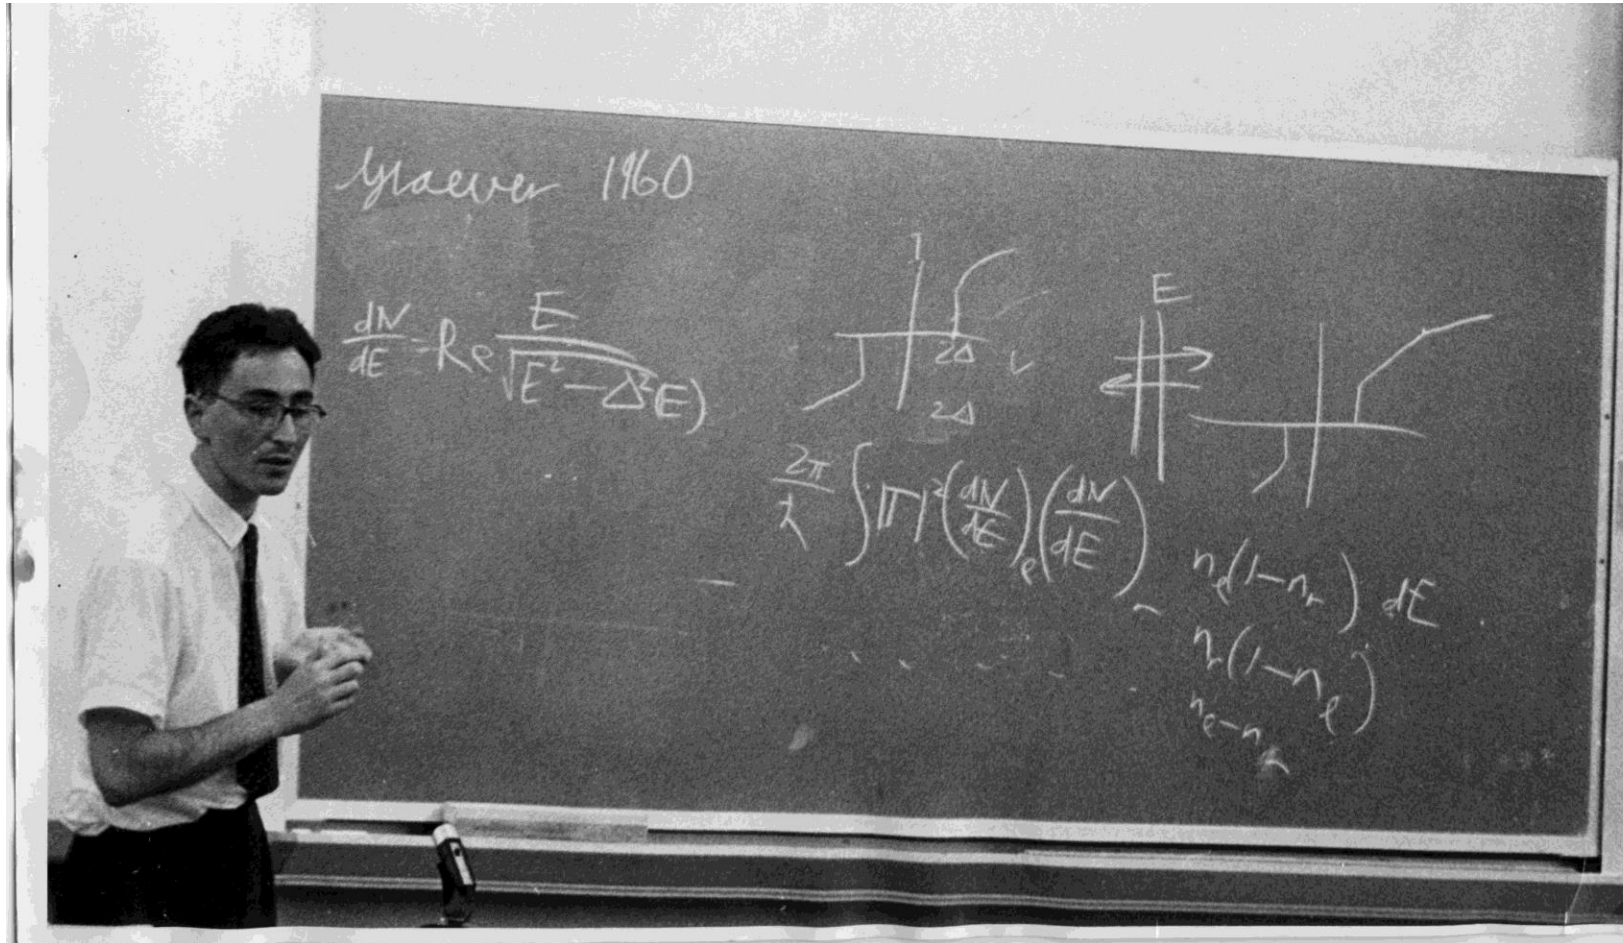 Giaever 1960
dN/dE = Re E/√(E² − Δ²(E))
I
2Δ
2Δ
E
2π/ħ ∫ |T|² (dN/dE)ₑ (dN/dE)ᵣ nₑ(1−nᵣ) dE
nᵣ(1−nₑ)
nₑ−nᵣ